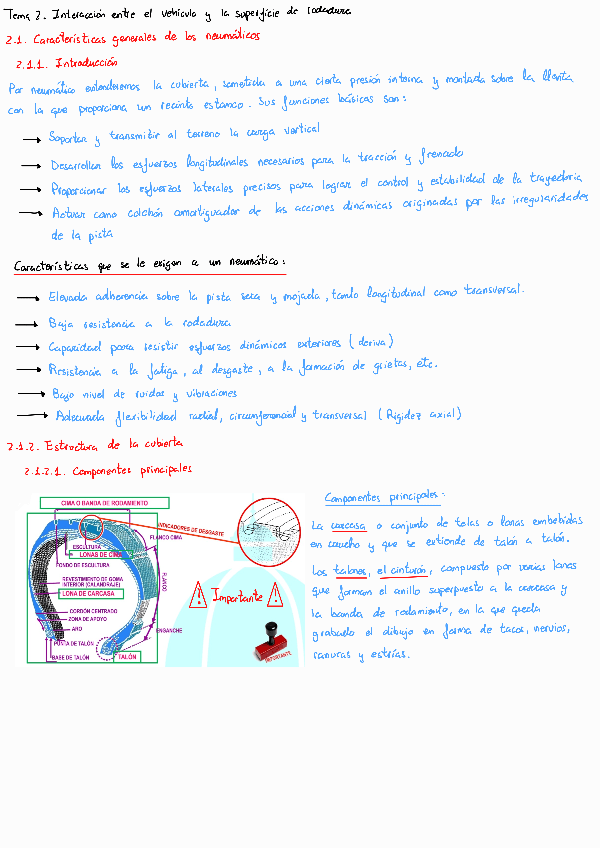 Tema 2. Interacción entre el vehículo y la superficie de rodadura
2.1. Características generales de los neumáticos
2.1.1. Introducción
Por neumático entenderemos la cubierta, sometida a una cierta presión interna y montada sobre la llanta
con la que proporciona un recinto estanco. Sus funciones básicas son:
→ Soportar y transmitir al terreno la carga vertical
→ Desarrollar los esfuerzos longitudinales necesarios para la tracción y frenado
→ Proporcionar los esfuerzos laterales precisos para lograr el control y estabilidad de la trayectoria
→ Actuar como colchón amortiguador de las acciones dinámicas originadas por las irregularidades
de la pista
Características que se le exigen a un neumático:
→ Elevada adherencia sobre la pista seca y mojada, tanto longitudinal como transversal.
→ Baja resistencia a la rodadura
→ Capacidad para resistir esfuerzos dinámicos exteriores (deriva)
→ Resistencia a la fatiga, al desgaste, a la formación de grietas, etc.
→ Bajo nivel de ruidos y vibraciones
→ Adecuada flexibilidad radial, circunferencial y transversal (Rigidez axial)
2.1.2. Estructura de la cubierta
2.1.2.1. Componentes principales
CIMA O BANDA DE RODAMIENTO
INDICADORES DE DESGASTE
FLANCO CIMA
ESCULTURA
LONAS DE CIMA
FONDO DE ESCULTURA
REVESTIMIENTO DE GOMA
INTERIOR (CALANDRAJE)
FLANCO
LONA DE CARCASA
CORDÓN CENTRADO
ZONA DE APOYO
ARO
ENGANCHE
PUNTA DE TALÓN
BASE DE TALÓN
TALÓN
Importante
IMPORTANTE
Componentes principales:
La carcasa o conjunto de telas o lonas embebidas
en caucho y que se extiende de talón a talón.
Los talones, el cinturón, compuesto por varias lonas
que forman el anillo superpuesto a la carcasa y
la banda de rodamiento, en la que queda
grabado el dibujo en forma de tacos, nervios,
ranuras y estrías.